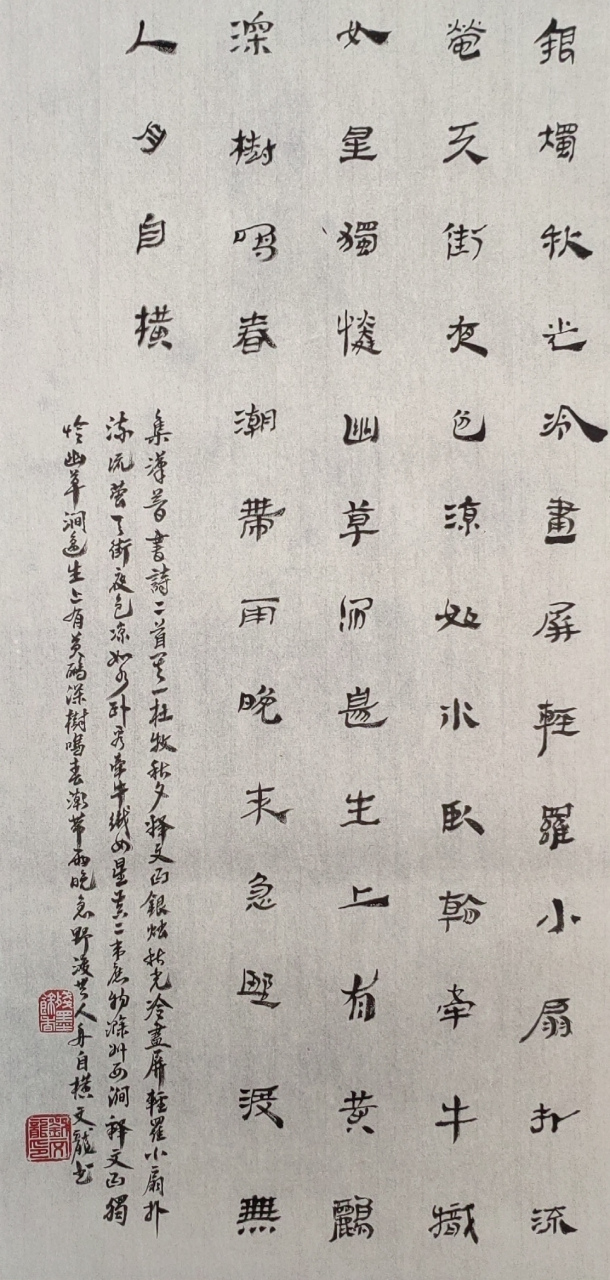 銀燭秋光冷畫屏輕羅小扇扑流
螢天街夜色涼如水臥看牽牛織
女星獨憐幽草澗邊生上有黃鸝
深樹鳴春潮帶雨晚來急野渡無
人舟自橫
集漢簡書詩二首其一杜牧秋夕释文曰銀烛秋光冷畫屏輕羅小扇扑
流萤天街夜色凉如水卧看牵牛织女星其二韦应物滁州西涧释文曰獨
怜幽草涧邊生上有黄鹂深樹鳴春潮带雨晚急野渡無人舟自橫文龍书